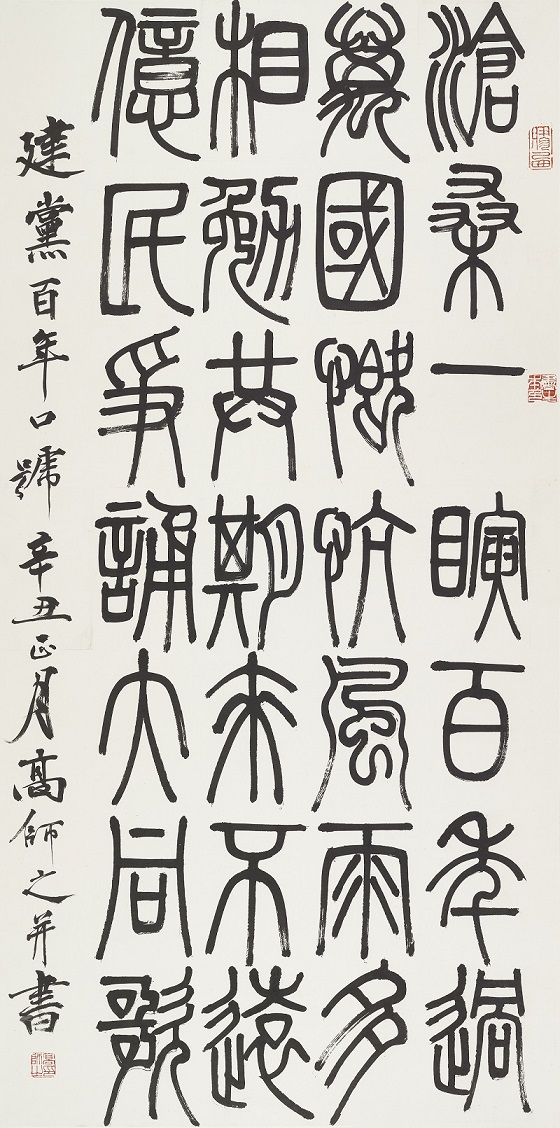 滄桑一瞚百年過
萬國慨忼風雨多
相勉共期來不遠
億民爭誦大同歌
建黨百年口號 辛丑正月高師之并書